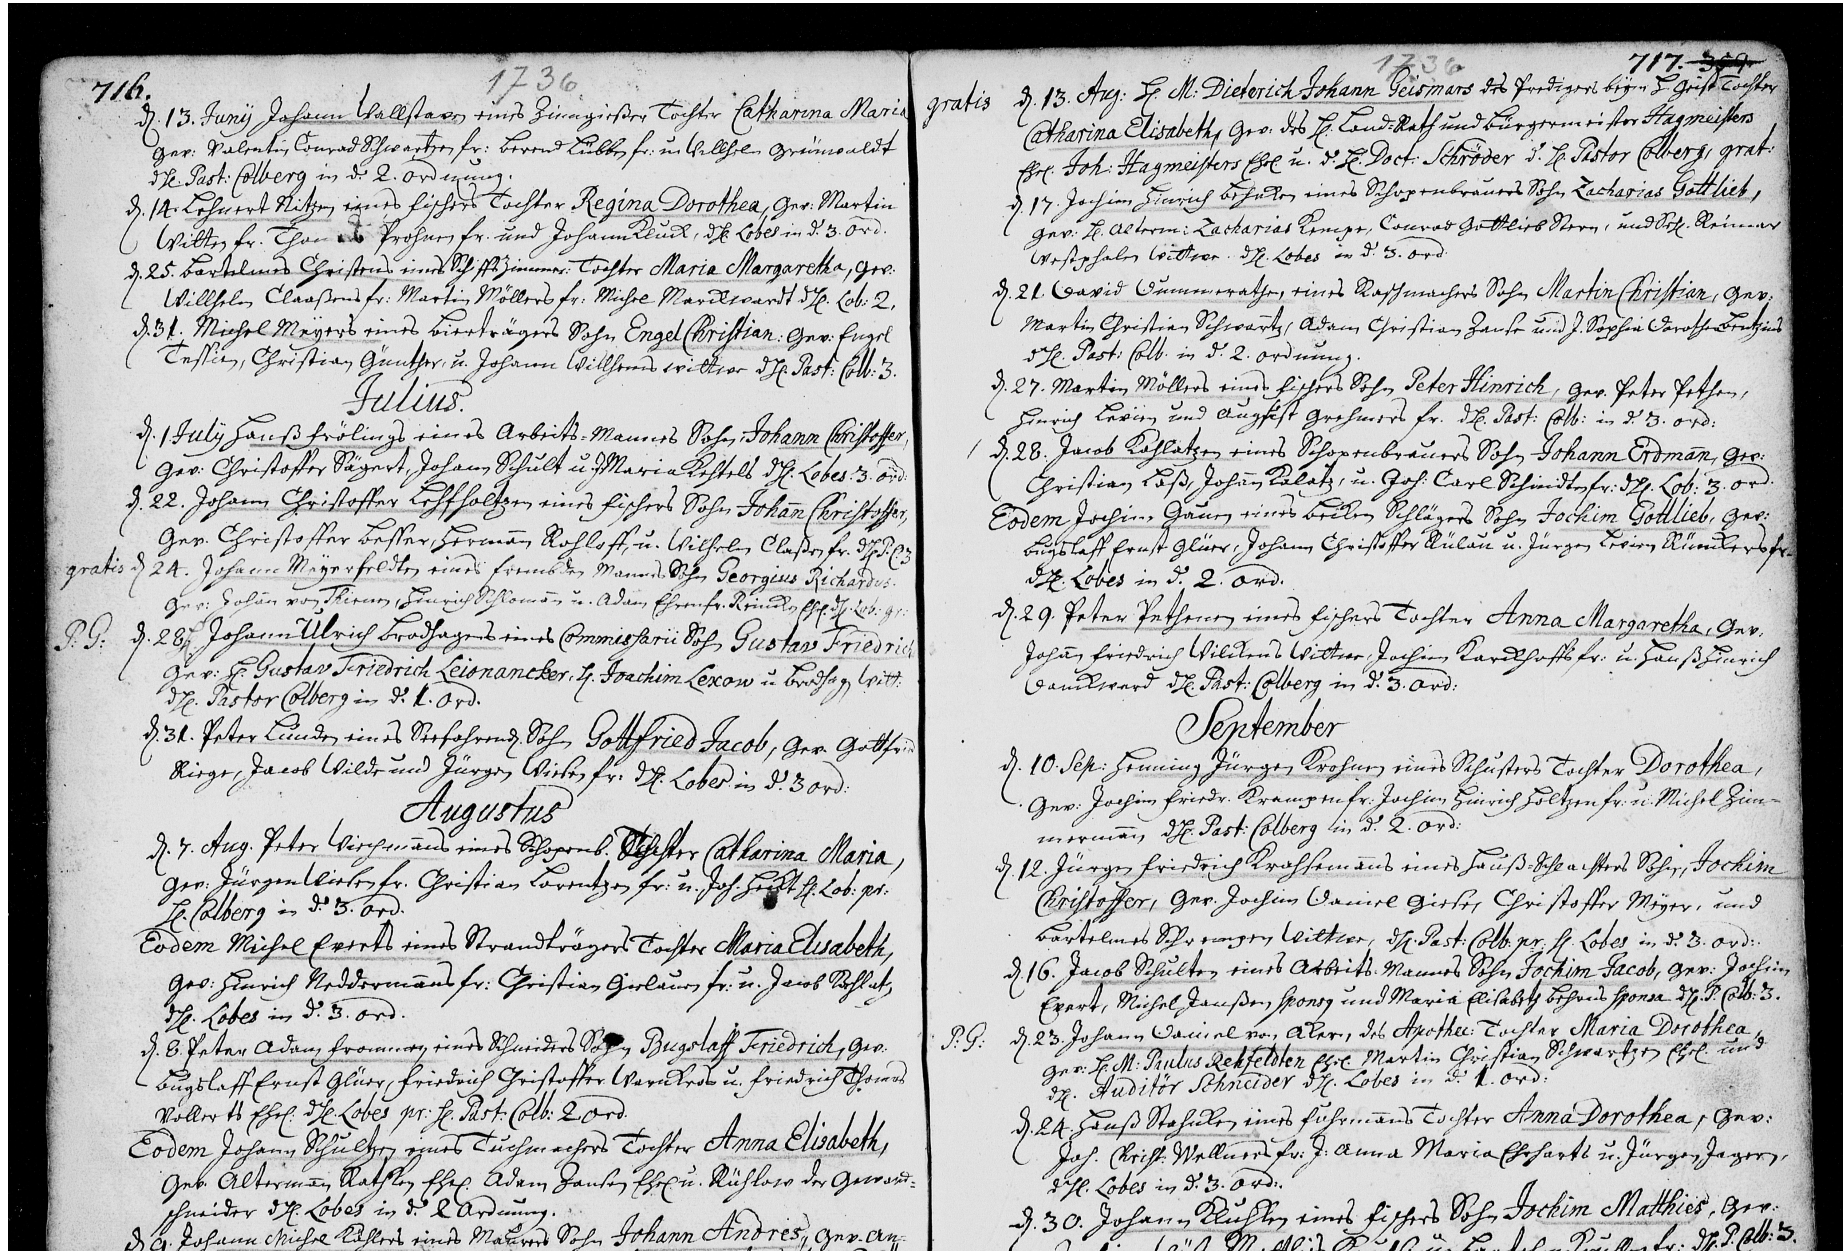 716.
1736
d. 13. Junij Johann Wallstaven eines Zinngießer Tochter Catharina Maria
Gev: Valentin Conrad Schwartzen fr: Berend Lübben fr: u. Willhelm Grünwaldt
d. H. Past: Colberg in d. 2. ordnung.
d. 14. Lehnert Nitzen eines fischers Tochter Regina Dorothea, Gev: Martin
Witten fr. Prohnen fr. und Johann Kluck, d. H. Lobes in d. 3. ord.
d. 25. Bartelmes Christens eines Schiffs Zimmer: Tochter Maria Margaretha, Gev:
Willhelm Claaßens fr: Martin Möllers fr: Michel Marckwardt d. H. Lob: 2.
d. 31. Michel Meyers eines Bierträgers Sohn Engel Christian: Gev: Engel
Tessien, Christian Günther, u. Johann Willhems wittwe d. H. Past: Colb: 3.
Julius.
d. 1 July Hanß Frölings eines Arbeits-Mannes Sohn Johann Christoffer,
Gev: Christoffer Sägert, Johann Schult u. J. Maria Kehtels d. H. Lobes: 3. ord:
d. 22. Johann Christoffer Lehfholtzen eines fischers Sohn Johann Christoffer,
Gev. Christoffer Besser, Herman Rohloff, u. Wilhelm Claßen fr. d. H. P. C. 3
gratis d. 24. Johann Meyerfeldten eines frembden Mannes Sohn Georgius Richardus.
Gev: Johan von Thienen, Hinrich Schloman u. Adam Ehrenfr. Reincken Ehel. d. H. Lob: gr:
P. G: d. 28. H. Johann Ulrich Brodhagens eines Commissarii Sohn Gustav Friedrich
Gev: H. Gustav Friedrich Leionancker, H. Joachim Lexow u Brodhag Witt:
d. H. Pastor Colberg in d. 1. ord.
d. 31. Peter Lünden eines Seefahrend. Sohn Gottfried Jacob, Gev. Gottfried
Riege, Jacob Wilde und Jürgen Wiesen fr: d. H. Lobes in d. 3 ord:
Augustus
d. 7. Aug. Peter Wiechmans eines Schopenb. Tochter Catharina Maria,
Gev: Jürgen Wiesen fr. Christian Lorentzen fr: u. Joh. Hecht H. Lob. pr:
H. Colberg in d. 3. ord.
Eodem Michel Everts eines Strandträgers Tochter Maria Elisabeth,
Gev: Hinrich Neddermans fr: Christian Gielauen fr: u. Jacob Kohlatz
d. H. Lobes in d. 3. ord.
d. 8. Peter Adam Frommen eines Schneiders Sohn Bugslaff Friedrich, Gev:
Bugslaff Ernst Glüer, Friedrich Christoffer Warnkros u. Friedrich Thomas
Vollerts Ehel. d. H. Lobes pr: H. Past: Colb: 2 ord.
Eodem Johann Schultzen eines Tuchmachers Tochter Anna Elisabeth,
Gev. Altermann Rathken Ehel. Adam Jansen Ehel u. Rühlow der Gewand-
schneider d. H. Lobes in d. 2 ordnung.
d. 9. Johann Michel Kählers eines Maurers Sohn Johann Andres, Gev. An-
1736
717. 359
gratis d. 13. Aug: H. M: Dieterich Johann Geismars des Predigers beym H. Geist Tochter
Catharina Elisabeth, Gev: des H. Land-Rath und Bürgermeister Hagmeisters
Ehel. Joh: Hagmeisters Ehel u. d. H. Doct: Schröder d. H. Pastor Colberg, grat:
d. 17. Jochim Hinrich Behnken eines Schopenbrauers Sohn Zacharias Gottlieb,
Gev: H. Alterm: Zacharias Kempe, Conrad Gottlieb Stern, und Sehl. Reimar
Westphalen Wittwe. d. H. Lobes in d. 3. ord.
d. 21. David Dummerathen, eines Raschmachers Sohn Martin Christian, Gev:
Martin Christian Schwartz, Adam Christian Janse und J. Sophia Dorothea Bentzins
d. H. Past: Colb. in d. 2. ordnung.
d. 27. Martin Möllers eines fischers Sohn Peter Hinrich, Gev. Peter Pethen,
Hinrich Levien und August Grehmers fr. d. H. Past: Colb: in d. 3. ord:
d. 28. Jacob Kohlatzen eines Schopenbrauers Sohn Johann Erdmann, Gev:
Christian Laß, Johann Kolatz, u. Joh: Carl Schmidten fr: d. H. Lob: 3. ord.
Eodem Jochim Gauen eines Becken Schlägers Sohn Jochim Gottlieb, Gev:
Bugslaff Ernst Glüer, Johann Christoffer Rülau u. Jürgen Levien Rünckers fr.
d. H. Lobes in d. 2. ord.
d. 29. Peter Pethenen eines fischers Tochter Anna Margaretha, Gev:
Johann Friedrich Wilckens Wittwe, Jochim Karckhoffs fr: u. Hanß Hinrich
Danckward d. H. Past: Colberg in d. 3. ord:
September
d. 10. Sep: Henning Jürgen Krohnen eines Schusters Tochter Dorothea,
Gev: Jochim Friedr. Krampen fr: Jochim Hinrich Holtzen fr: u. Michel Zim-
mermann, d. H. Past: Colberg in d. 2. ord:
d. 12. Jürgen Friedrich Krahsemans eines Hauß-Schlachters Sohn, Jochim
Christoffer, Gev. Jochim Daniel Giese, Christoffer Meyer, und
Bartelmes Wittwe, d. H. Past: Colb: pr: H. Lobes in d. 3. ord:
d. 16. Jacob Schulten eines Arbeits-Mannes Sohn Jochim Jacob, Gev: Jochim
Evert, Michel Janßen Spons9 und Maria Elisabeth Behrens Sponsa d. H. P. Colb: 3.
P. G: d. 23. Johann Daniel von Aken, des Apothec: Tochter Maria Dorothea,
Gev: H. M: Paulus Rehfeldten Ehel. Martin Christian Schwartzen Ehel. und
d. H. Auditör Schneider d. H. Lobes in d. 1. ord:
d. 24. Hanß Stahcken eines fuhrmanns Tochter Anna Dorothea, Gev:
Joh. Christ. Wellners fr: J: Anna Maria Ehrharts u. Jürgen Jagern,
d. H. Lobes in d. 3. ord:
d. 30. Johann Kluhken eines fischers Sohn Jochim Matthies, Gev:
fr: d. H. P. Colb: 3.